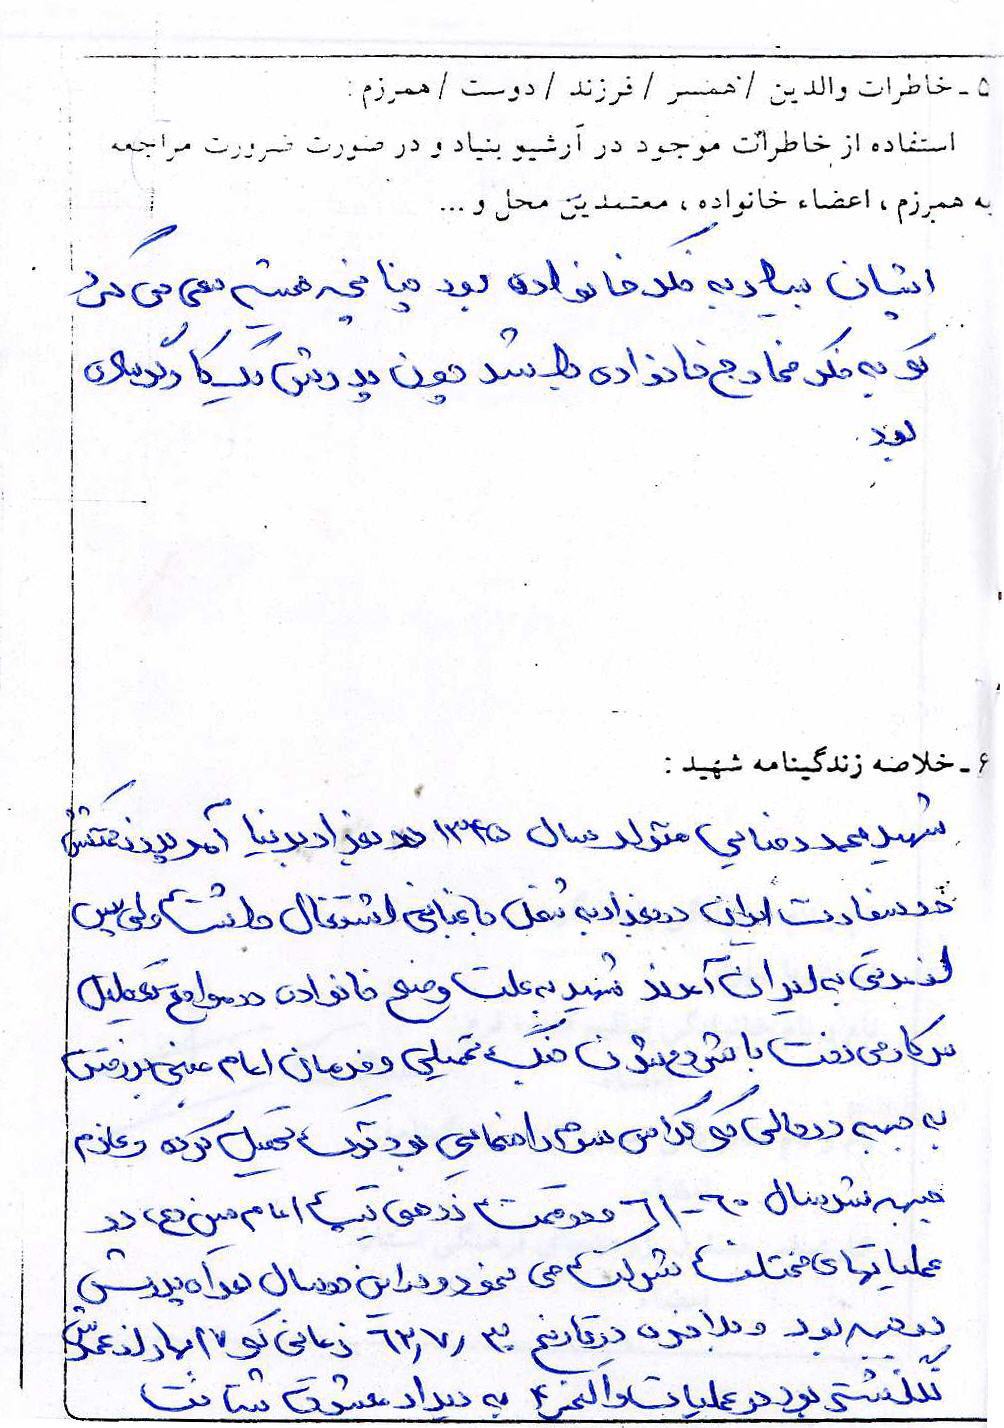 ۵ ـ خاطرات والدین / همسر / فرزند / دوست / همرزم :
استفاده از خاطرات موجود در آرشیو بنیاد و در صورت ضرورت مراجعه
به همرزم ، اعضاء خانواده ، معتمدین محل و ...
ایشان بسیار به فکر خانواده بود چنانچه همیشه سعی می کرد
که به فکر مخارج خانواده باشد چون پدرش یک کارگر ساده
بود.
۶ ـ خلاصه زندگینامه شهید :
شهید محمد رضایی متولد سال ۱۳۴۵ در بغداد بدنیا آمد پدر زحمتکشش
در سفارت ایران در بغداد به شغل باغبانی اشتغال داشت ولی پس
از مدتی به ایران آمدند شهید به علت وضع خانواده در مواقع تعطیل
سر کار می رفت با شروع شدن جنگ تحمیلی و فرمان امام مبنی بر رفتن
به جبهه در حالی که کلاس سوم راهنمایی بود ترک تحصیل کرده و عازم
جبهه شد سال ۶۰-۶۱ در قسمت زرهی تیپ امام حسن (ع) در
عملیاتهای مختلف شرکت می نمود و در این دو سال همراه پدرش
در جبهه بود و بلاخره در تاریخ ۶۲٫۷٫۳۰ زمانی که ۱۷ بهار از عمرش
نگذشته بود در عملیات والفجر ۴ به دیدار معشوق شتافت